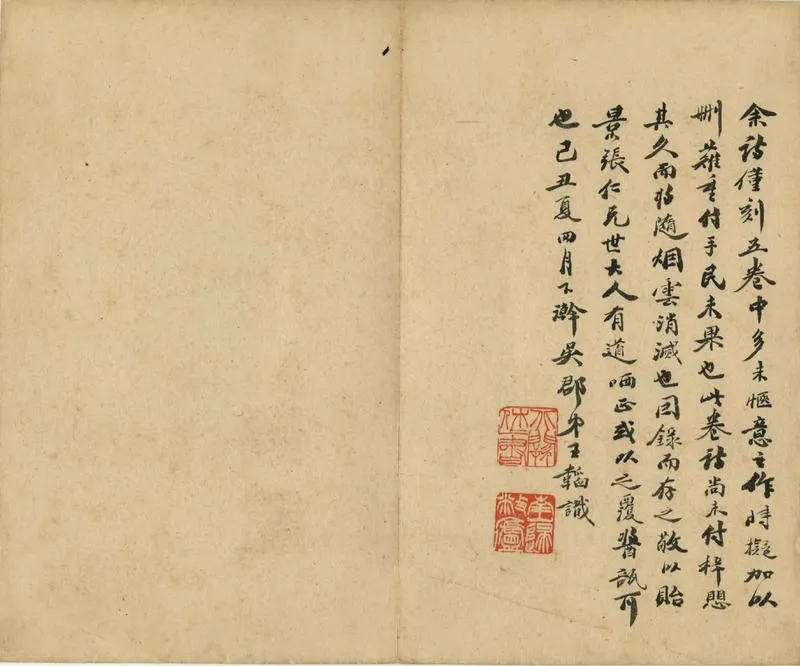 余詩僅刻五卷中多未愜意之作時擬加以
刪薙重付手民未果也此卷詩尚未付梓懼
其久而將隨烟雲消滅也因錄而存之敬以貽
景張仁兄世大人有道哂正或以之覆醬瓿可
也己丑夏四月下澣吳郡弟王韜識